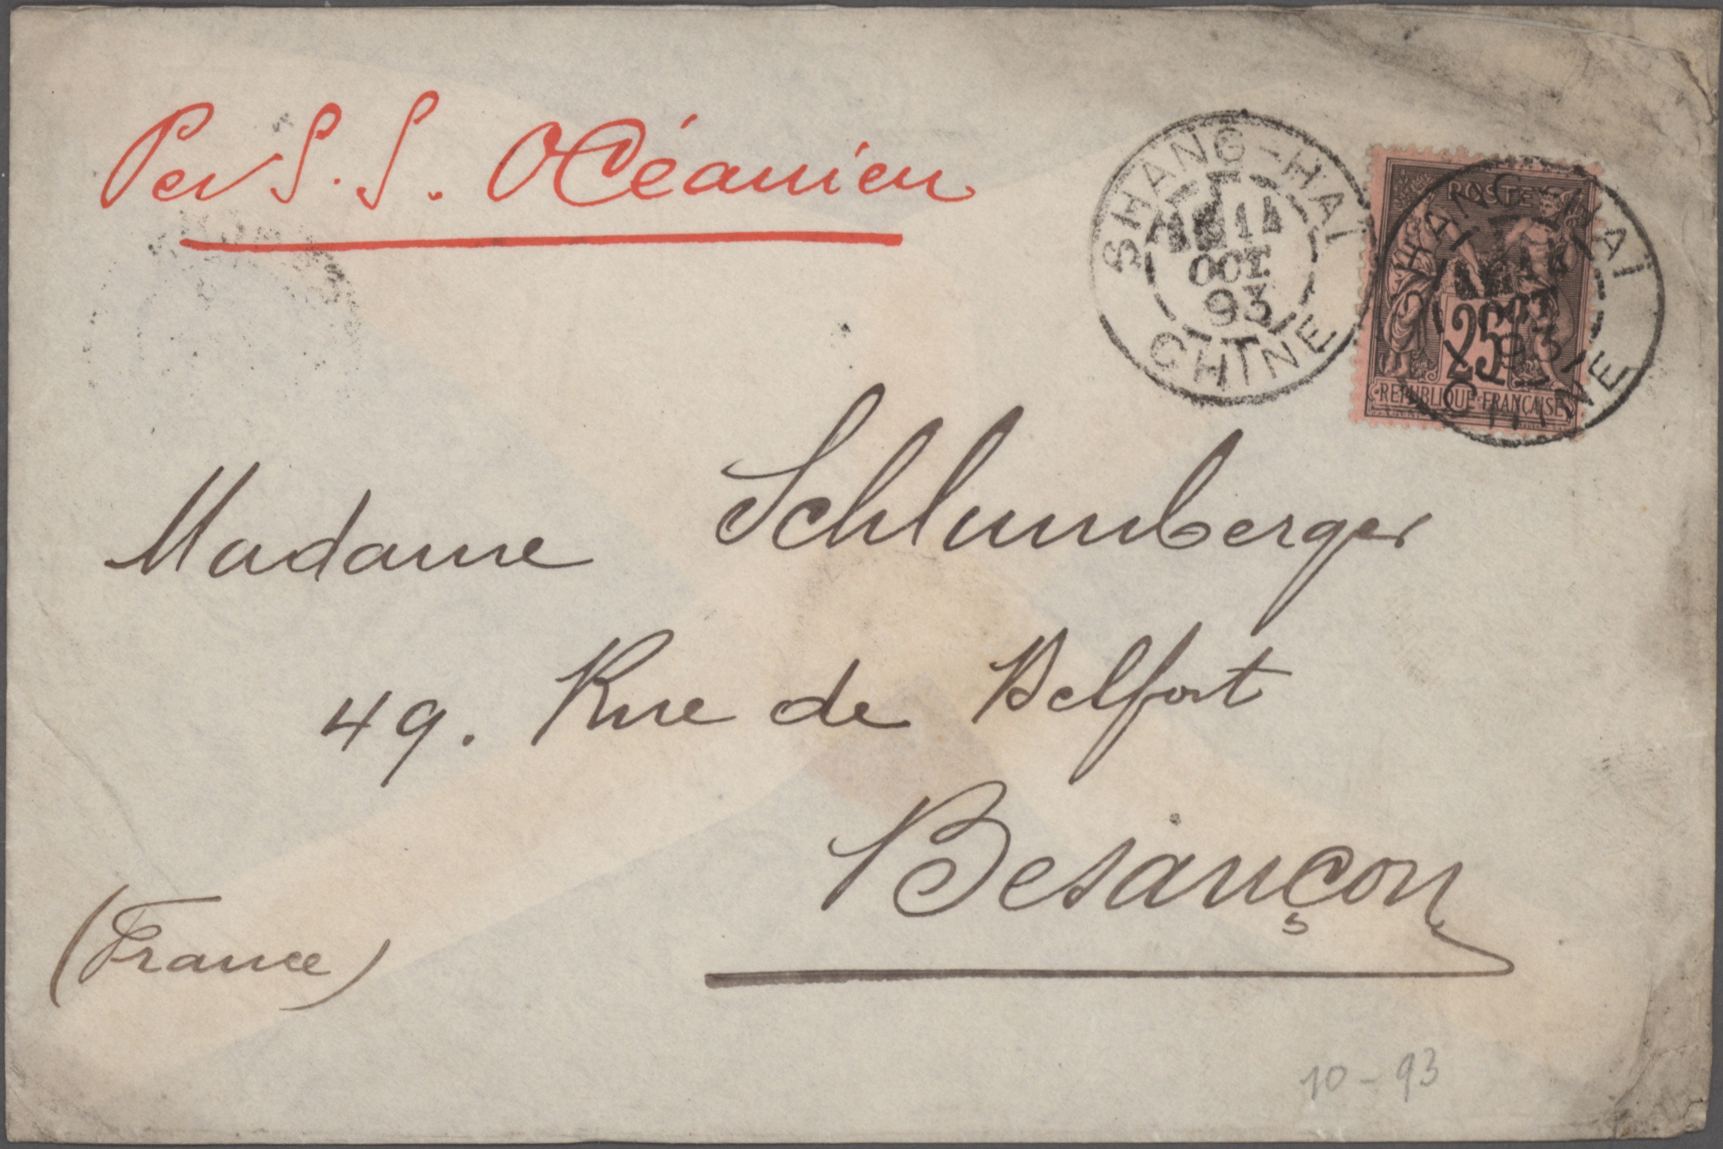 Per S. S. Océanien
SHANG-HAÏ
14
OCT.
93
CHINE
POSTE
25
REPUBLIQUE FRANÇAISE
SHANG-HAÏ
14
OCT
93
CHINE
Madame Schlumberger
49. Rue de Belfort
Besançon
(France)
10-93